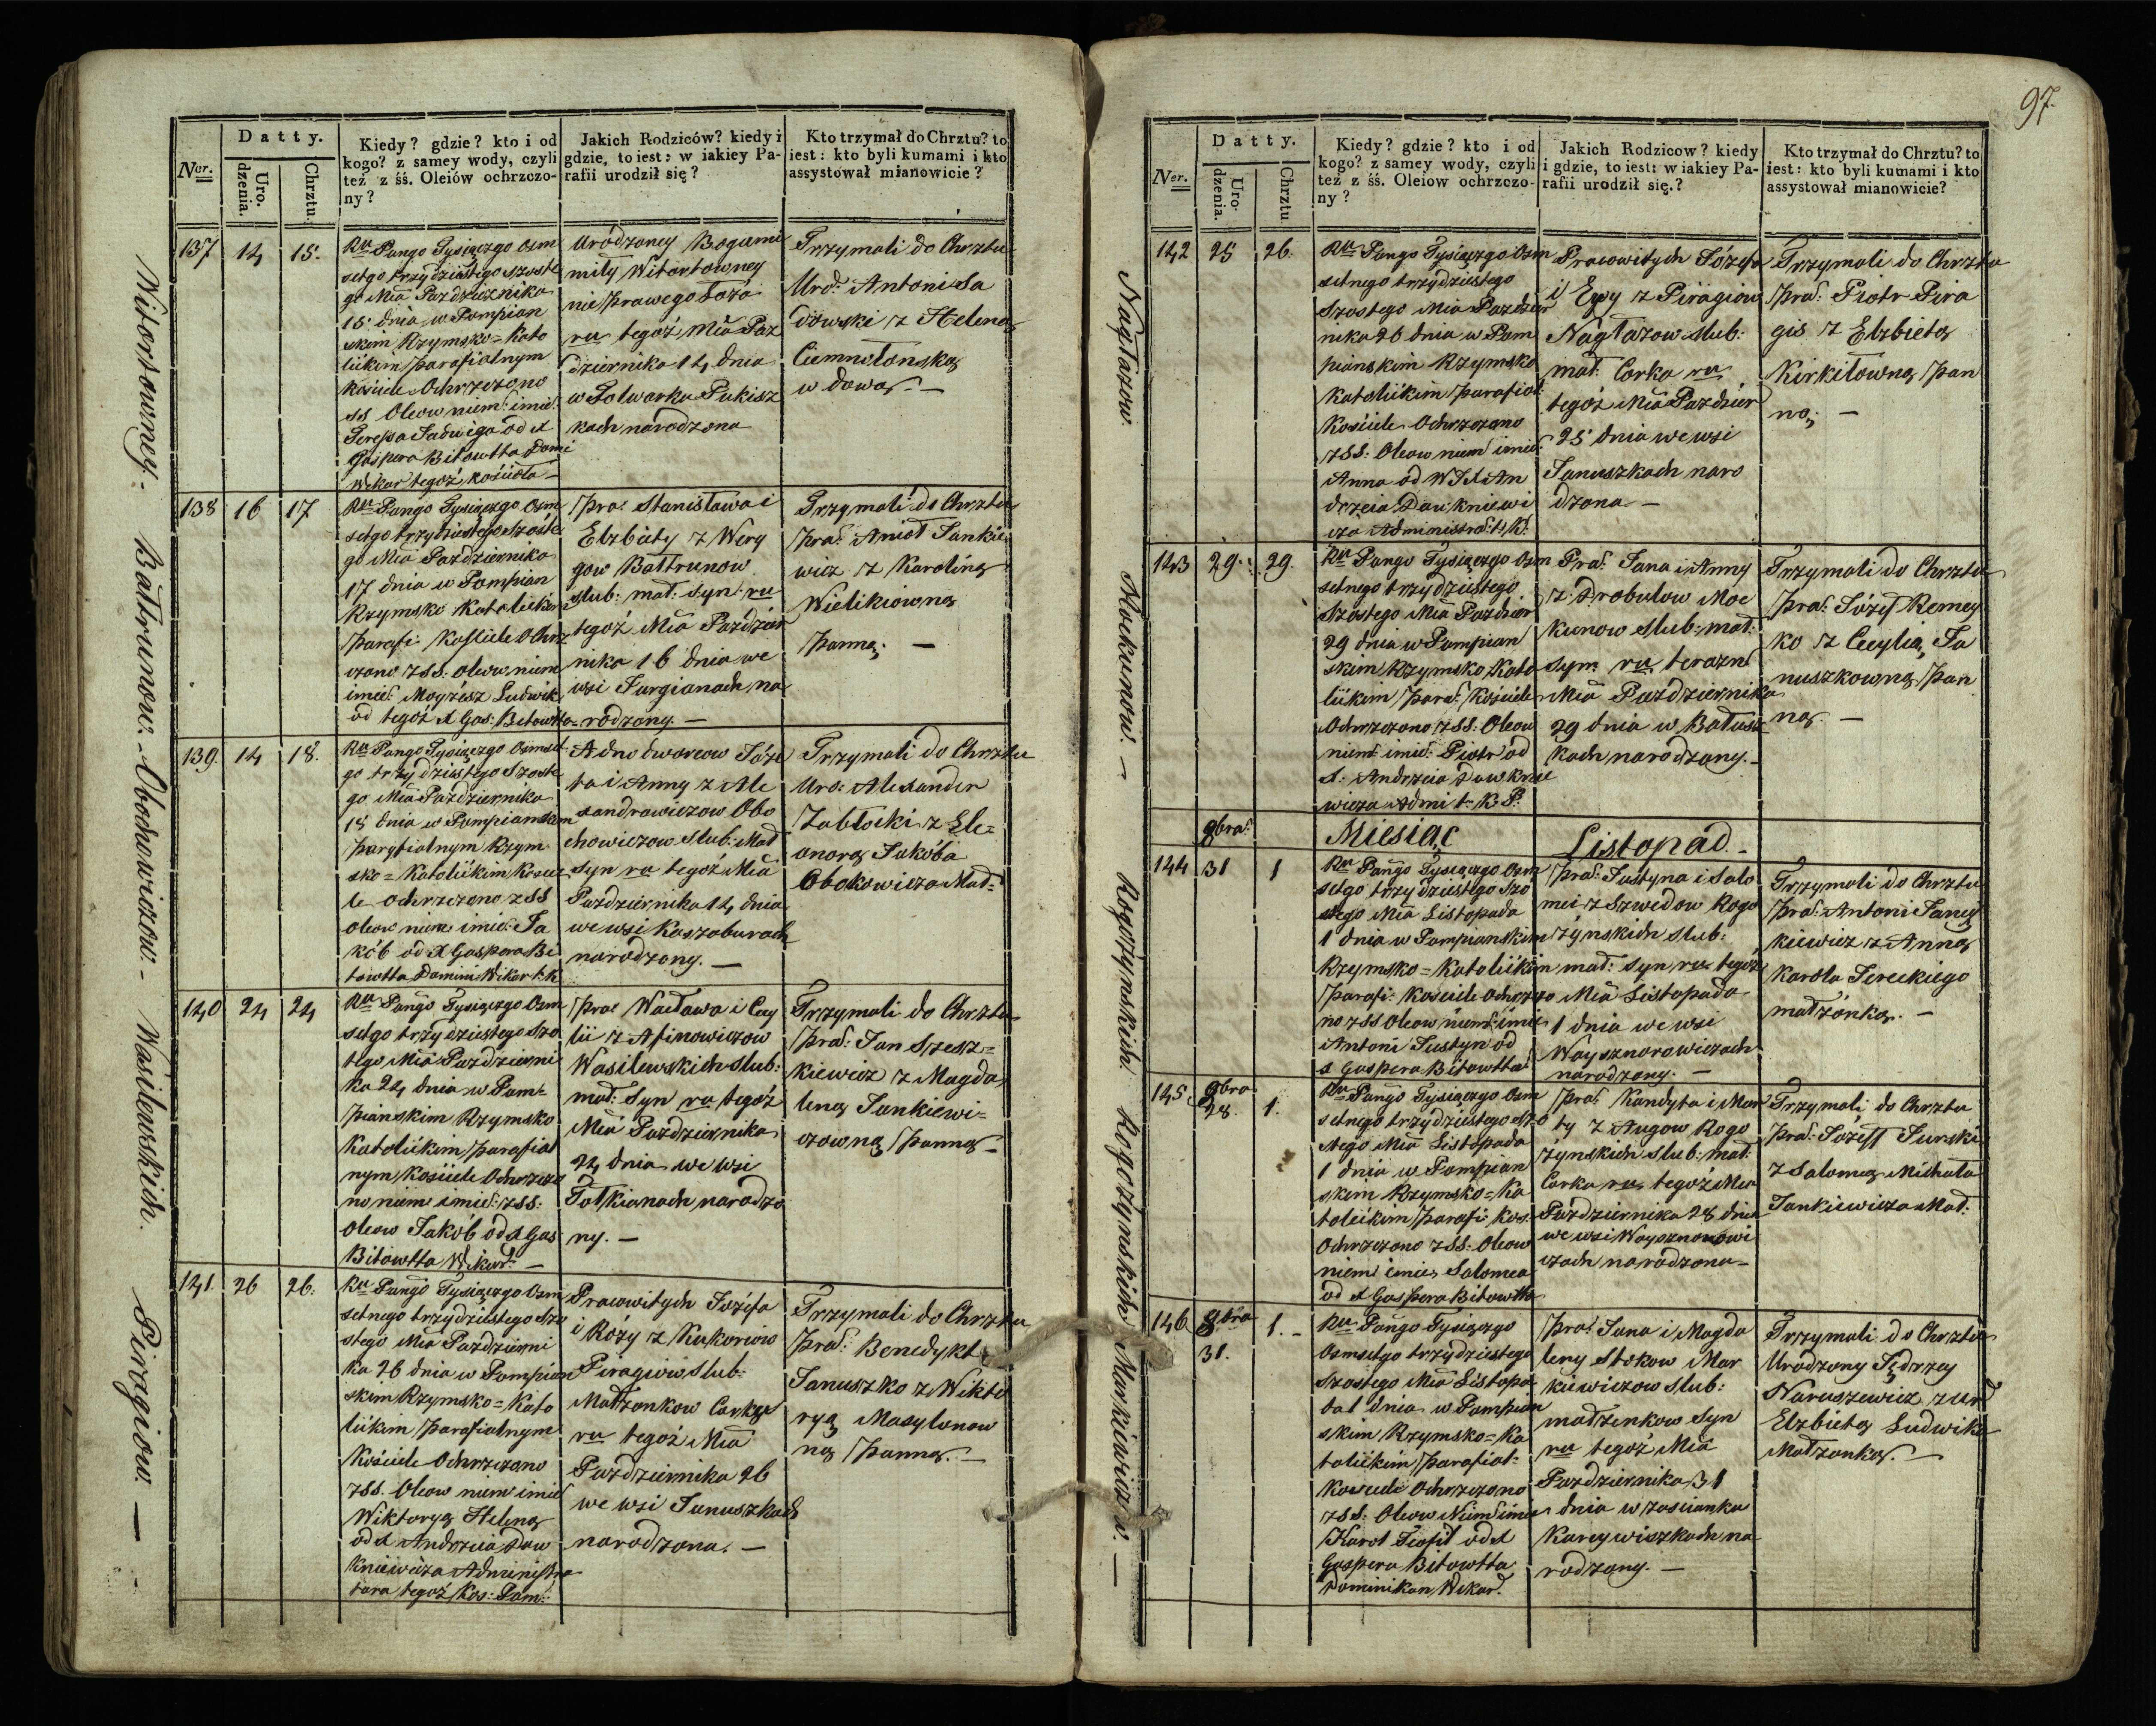 Witortowney.
Bałtrunow.
Obochowiczow.
Wasilewskich.
Piragiow.
Ner.
Datty.
Uro.
dzenia.
Chrztu.
Kiedy? gdzie? kto i od
kogo? z samey wody, czyli
też z śś. Oleiów ochrzczo-
ny?
Jakich Rodziców? kiedy i
gdzie, to iest: w iakiey Pa-
rafii urodził się?
Kto trzymał do Chrztu? to
iest: kto byli kumami i kto
assystował mianowicie?
137
14
15.
Ru Pango Tysiączgo Osm
setgo trzydziestego szoste
go Mia Pazdziernika
15 dnia w Pompian
skim Rzymsko=Kato
lickim parafialnym
Kościele Ochrzczono
SS Oleow niem: imie:
Teressa Jadwiga od X
Gaspera Bitowtta Domi
Wikar tegoż kościoła –
Urodzoney Bogumi
miły Witortowney
nieprawego Łoża
ru tegoż Mia Paz
dziernika 14 dnia
w Folwarku Pukisz
kach narodzona
Trzymali do Chrztu
Urd: Antoni Sa
dowski z Heleną
Ciemnołonską
wdową. –
138
16
17
Ru Pango Tysiączgo Osm
setgo trzydziestego szoste
go Mia Pazdziernika
17 dnia w Pompian
Rzymsko Katolickim
Parafi: Kosciele Ochrz
czono z SS: oleow niem
imie: Moyżesz Ludwik
od tegoż X Gas: Bitowtta
Pra: Stanisława i
Elzbiety z Wery
gow Bałtrunow
slub: mał: Syn: ru
tegoż Mia Pazdzier
nika 16 dnia we
wsi Jurgianach na
rodzony. –
Trzymali do Chrztu
Pra: Anioł Jankie
wicz z Karoliną
Wielikiowną
Panną. –
139.
14
18.
Ru Pango Tysiączgo Osmset
go trzydziestego Szoste
go Mia Pazdziernika
18 dnia w Pompianskim
paryfialnym Rzym
sko=Katolickim Koscie
le ochrzczono z SS
oleow niem imie: Ja
kób od X Gaspera Bi
towtta Domini Wikar t: k
Adnodworcow Józe
fa i Anny z Ale
xandrowiczow Obo
chowiczow Slub: Mał
Syn ru tegoż Mia
Pazdziernika 14 dnia
we wsi Kaszaburach
narodzony. –
Trzymali do Chrztu
Uro: Alexander
Zabłocki z Ele=
onorą Jakóba
Obokowicza Mał=
140
24
24
Ru Pango Tysiączgo Osm
setgo trzydziestego Szo
tego Mia Pazdzierni
ka 24 dnia w Pom=
pianskim Rzymsko
Katolickim parafial
nym Kościele Ochrzczo
no niem imie: z SS:
Oleow Jakób od X Gas
Bitowtta Wikar: –
Pra: Wacława i Cecy
lii z Afinowiczow
Wasilewskich Slub:
mał: Syn ru tegoż
Mia Pazdziernika
24 dnia we wsi
Tołkianach narodzo
ny. –
Trzymali do Chrztu
Pra: Jan Szesz=
kiewicz z Magda
leną Jankiewi=
czowną Panną –
141.
26
26.
Ru Pango Tysiączgo Osm
setnego trzydziestego Szo
stego Mia Pazdzierni
ka 26 dnia w Pompian
skim Rzymsko=Kato
lickim Parafialnym
Kościele Ochrzczono
z SS. Oleow niem imie
Wiktoryą Heleną
od X Andrzeia Daw
kniewicza Administra
tora tegoż Kos: Pom:
Pracowitych Józefa
i Róży z Kukoriow
Piragiow Slub:
Małzonkow Corka
ru tegoż Mia
Pazdziernika 26
we wsi Januszkach
narodzona. –
Trzymali do Chrztu
Pra: Benedykt
Januszko z Wikto
ryą Masylonow
ną Panną. –
97.
Nagłazow.
Mockunow. –
Rogożynskich.
Rogożynskich.
Markiewiczow. –
Ner.
Datty.
Uro-
dzenia.
Chrztu
Kiedy? gdzie? kto i od
kogo? z samey wody, czyli
też z śś. Oleiow ochrzczo-
ny?
Jakich Rodzicow? kiedy
i gdzie, to iest: w iakiey Pa-
rafii urodził się?
Kto trzymał do Chrztu? to
iest: kto byli kumami i kto
assystował mianowicie?
142
25
26.
Ru Pango Tysiączgo Osm
setnego trzydziestego
Szostego Mia Pazdzier
nika 26 dnia w Pom
pianskim Rzymsko
Katolickim parafial
Kościele Ochrzczono
z SS: Oleow niem imie:
Anna od W JX An
drzeia Dawkniewi
cza Administrat: t: K:
Pracowitych Józefa
i Ewy z Piragiow
Nagłazow slub:
mał: Corka ru
tegoż Mia Pazdzier
25 dnia we wsi
Januszkach naro
dzona –
Trzymali do Chrztu
Pra: Piotr Pira
gis z Elzbietą
Kirkiłowną pan
ną. –
143
29.
29.
Ru Pango Tysiączgo Osm
setnego trzydziestego
Szostego Mia Pazdzier
29 dnia w Pompian
skim Rzymsko Kato
lickim para: Kościele
Ochrzczono z SS. Oleow
niem: imie: Piotr od
X: Andrzeia Dawknie
wicza Admi t: K P:
Pra: Jana i Anny
z Drobulow Moc
kunow slub: mał:
syn ru terazn
Mia Pazdziernika
29 dnia w Bałusz
kach narodzony. –
Trzymali do Chrztu
Pra: Józef Remey
ko z Cecylią Ja
nuszkowną Pan
ną. –
8bra:
Miesiąc
Listopad. –
144
31
1
Ru Pango Tysiączgo Osm
setgo trzydziestego Szo
stego Mia Listopada
1 dnia w Pompianskim
Rzymsko=Katolickim
Parafi: Kosciele Ochrzczo
no z SS Oleow niem: imie
Antoni Justyn od
X Gaspera Bitowtta
Pra: Justyna i Salo
mei z Szwedow Rogo
żynskich Slub:
mał: Syn ru tegoż
Mia Listopada
1 dnia we wsi
Waysznorowiczach
narodzony. –
Trzymali do Chrztu
Pra: Antoni Janey
kiewicz z Anną
Karola Jereckiego
małzonką. –
145.
8bra
28.
1.
Ru Pango Tysiączgo Osm
setnego trzydziestego Szo
stego Mia Listopada
1 dnia w Pompian
skim Rzymsko=Ka
tolickim Parafi: Kos:
Ochrzczono z SS: Oleow
niem: imie, Salomea
od X Gaspera Bitowtta
Pra: Kandyta i Mar
ty z Augow Rogo
żynskich slub: mał:
Corka ru tegoż Mia
Pazdziernika 28 dnia
we wsi Waysznorowi
czach narodzona –
Trzymali do Chrztu
Pra: Józeff Jurski
z Salomeą Michała
Jankiewicza Mał:
146
8bra
31.
1. –
Ru Pango Tysiączgo
Osmsetgo trzydziestego
Szostego Mia Listopa
da 1 dnia w Pompian
skim Rzymsko=Ka
tolickim Parafial:
Kosciele Ochrzczono
z SS: Oleow Niem: imie
Karol Teofil od X
Gaspera Bitowtta
Dominikan Wikar:
Pra: Jana i Magda
leny Stokow Mar
kiewiczow Slub:
małzenkow Syn
ru tegoż Mia
Pazdziernika 31
dnia w zascianku
Karcywiszkach na
rodzony. –
Trzymali do Chrztu
Urodzony Jędrzey
Naruszewicz z Urd
Elzbietą Ludwika
Małzonką. –